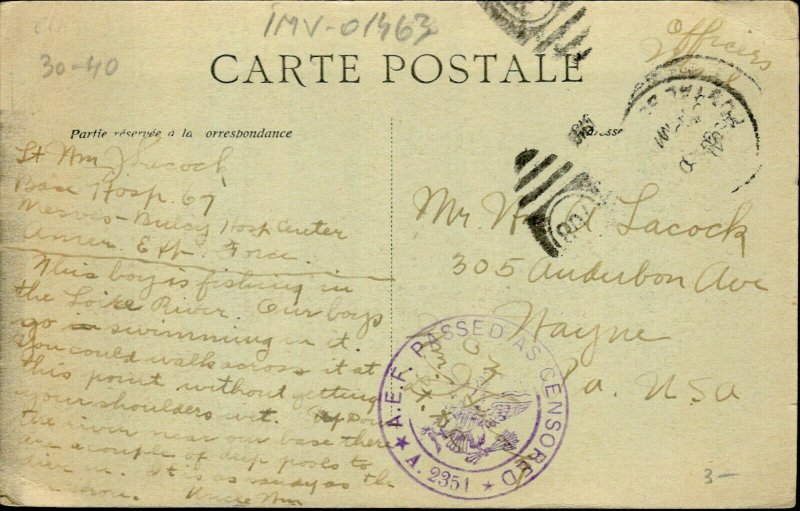 IMV-01463
30-40
Officers
Mail
CARTE POSTALE
Partie réservée à la orrespondance
Lt Wm J Lacock
Base Hosp. 67
Mesves-Bulcy Hosp Center
Amer. Ex. Force.
This boy is fishing in
the Loire River. Our boys
go in swimming in it.
You could walk across it at
this point without getting
your shoulders wet.
the river near our base there
are a couple of deep pools to
dive in. It is as sandy as the
Uncle Wm
Mr. Lacock
305 Auderbon Ave
Wayne
Pa. USA
A.E.F. PASSED AS CENSORED
A. 2351
3-